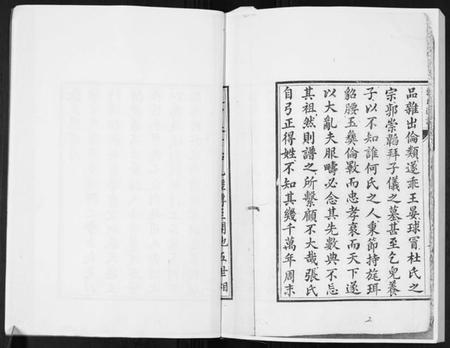 品雜出倫類遂乖王晏球冒杜氏之
宗郭崇韜拜子儀之墓甚至乞兒養
子以不知誰何氏之人秉節持旄珥
貂腰玉彝倫斁而忠孝衰而天下遂
以大亂夫服疇必念其先數典不忘
其祖然則譜之所繫顧不大哉張氏
自弓正得姓不知其幾千萬年周末
2